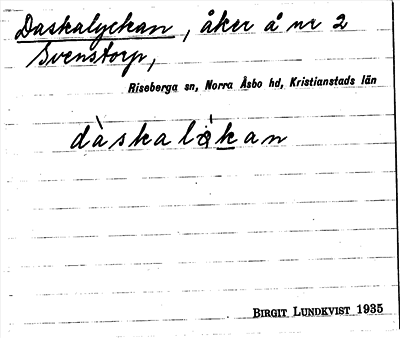 Daskalyckan, åker å nr 2
Svenstorp,
Riseberga sn, Norra Åsbo hd, Kristianstads län
dàskalø̀kan
BIRGIT LUNDKVIST 1935